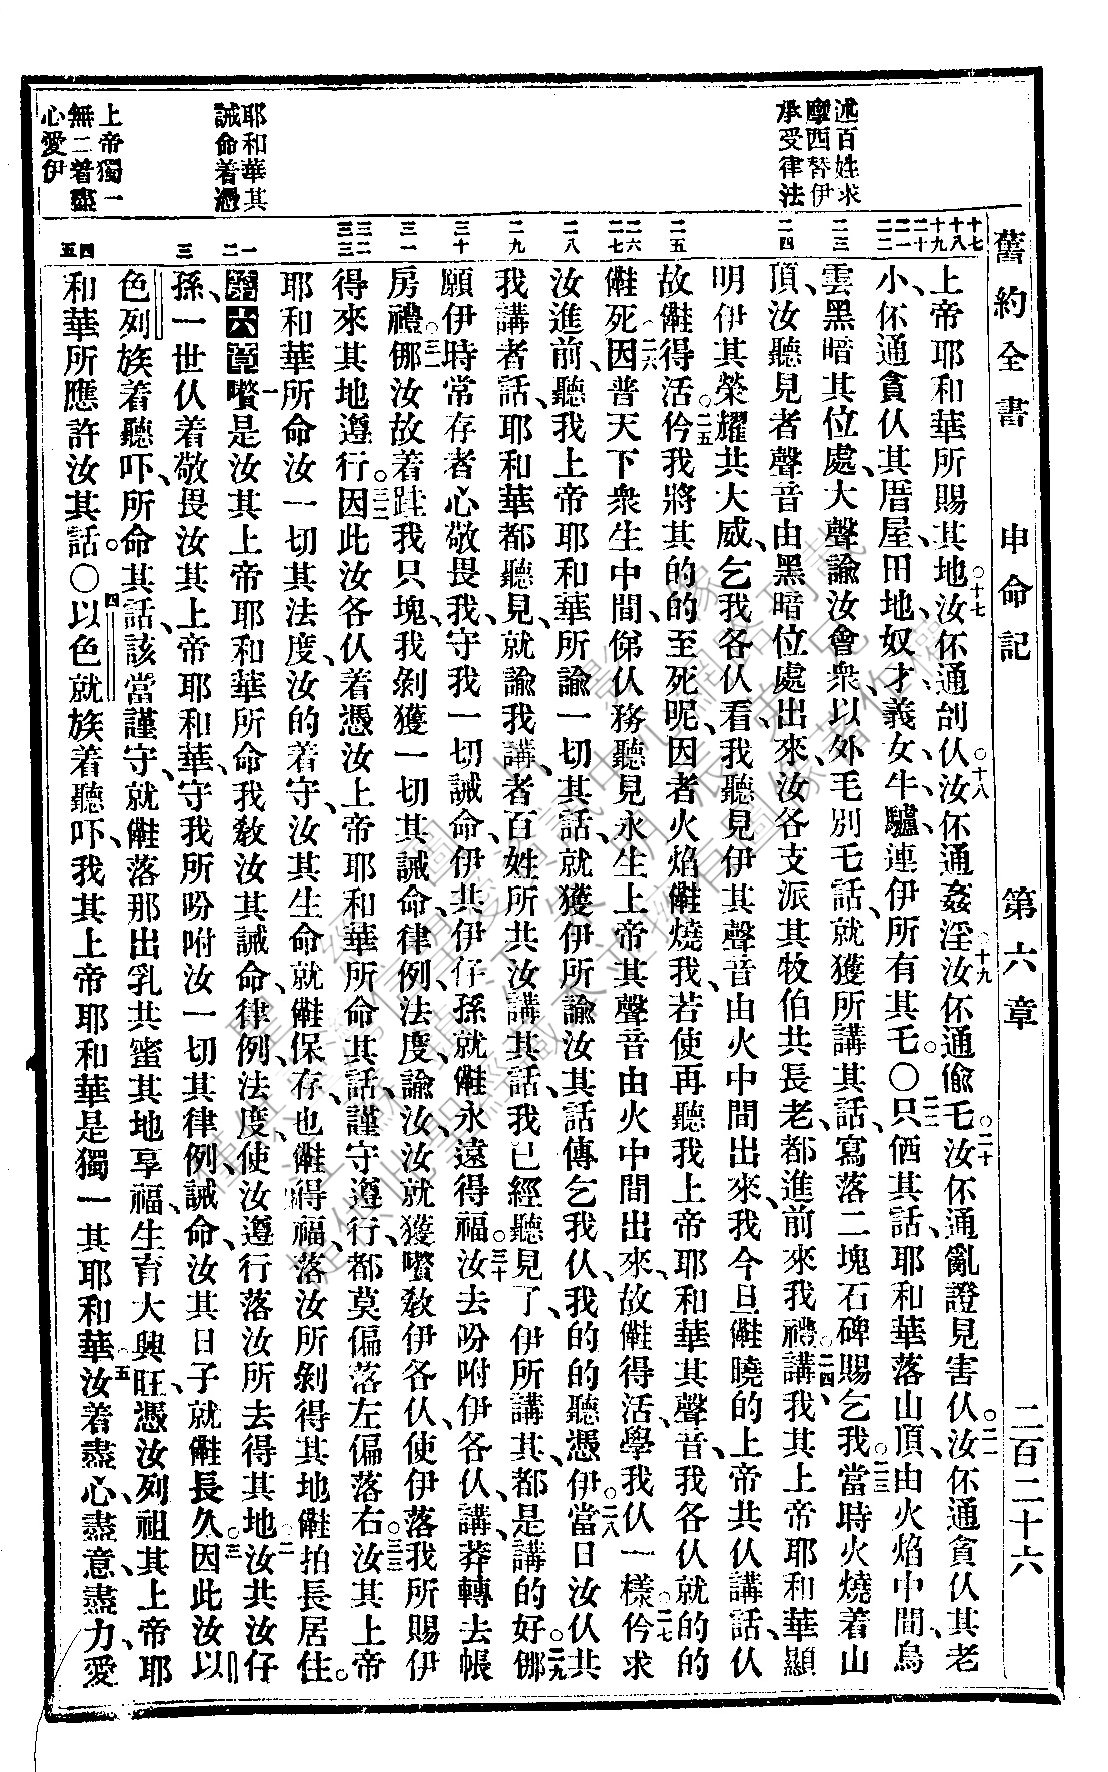 舊約全書 申命記 第六章 二百二十六
述百姓求
摩西替伊
承受律法
耶和華其
誡命着憑
上帝獨一
無二着盡
心愛伊
十七 十八 十九 二十 二一 二二 二三 二四 二五 二六 二七 二八 二九 三十 三一 三二 三三 一 二 三 四 五
上帝耶和華所賜其地、汝伓通刣仈、汝伓通姦淫、汝伓通偷乇、汝伓通亂證見害仈、汝伓通貪仈其老
小、伓通貪仈其厝屋、田地、奴才、義女、牛、驢、連伊所有其乇。〇只仂其話、耶和華落山頂、由火焰中間、烏
雲黑暗其位處、大聲諭汝會衆、以外毛別乇話、就獲所講其話、寫落二塊石碑、賜乞我、當時火燒着山
頂、汝聽見者聲音由黑暗位處出來、汝各支派其牧伯共長老、都進前來我禮講、我其上帝耶和華、顯
明伊其榮耀共大威、乞我各仈看、我聽見伊其聲音由火中間出來、我今旦曉的、上帝共仈講話、仈
故得活、仱我將其的的至死呢、因者火焰燒我、若使再聽我上帝耶和華其聲音、我各仈就的的
死、因普天下衆生中間、悌仈務聽見永生上帝其聲音、由火中間出來、故得活、學我仈一樣、仱求
汝進前、聽我上帝耶和華所諭一切其話、就獲伊所諭汝其話、傳乞我仈、我的的聽憑伊、當日汝仈共
我講者話、耶和華都聽見、就諭我講、者百姓所共汝講其話、我已經聽見了、伊所講其、都是講的好、
願伊時常存者心敬畏我、守我一切誡命、伊共伊仔孫、就永遠得福、汝去吩咐伊各仈講、莽轉去帳
房禮、汝故着我只塊、我剝獲一切其誡命、律例、法度、諭汝、汝就獲教伊各仈、使伊落我所賜伊
得來其地遵行、因此汝各仈着憑汝上帝耶和華所命其話、謹守遵行、都莫偏落左偏落右、汝其上帝
耶和華所命汝一切其法度、汝的着守、汝其生命就保存、也得福、落汝所剝得其地拍長居住。
第六章 是汝其上帝耶和華所命我教汝其誡命、律例、法度、使汝遵行落汝所去得其地、汝共汝仔
孫、一世仈着敬畏汝其上帝耶和華、守我所吩咐汝一切其律例、誡命、汝其日子就長久、因此汝以
色列族着聽吓、所命其話、該當謹守、就落那出乳共蜜其地享福、生育大興旺、憑汝列祖其上帝耶
和華所應許汝其話。〇以色就族着聽吓、我其上帝耶和華是獨一其耶和華、汝着盡心、盡意、盡力、愛